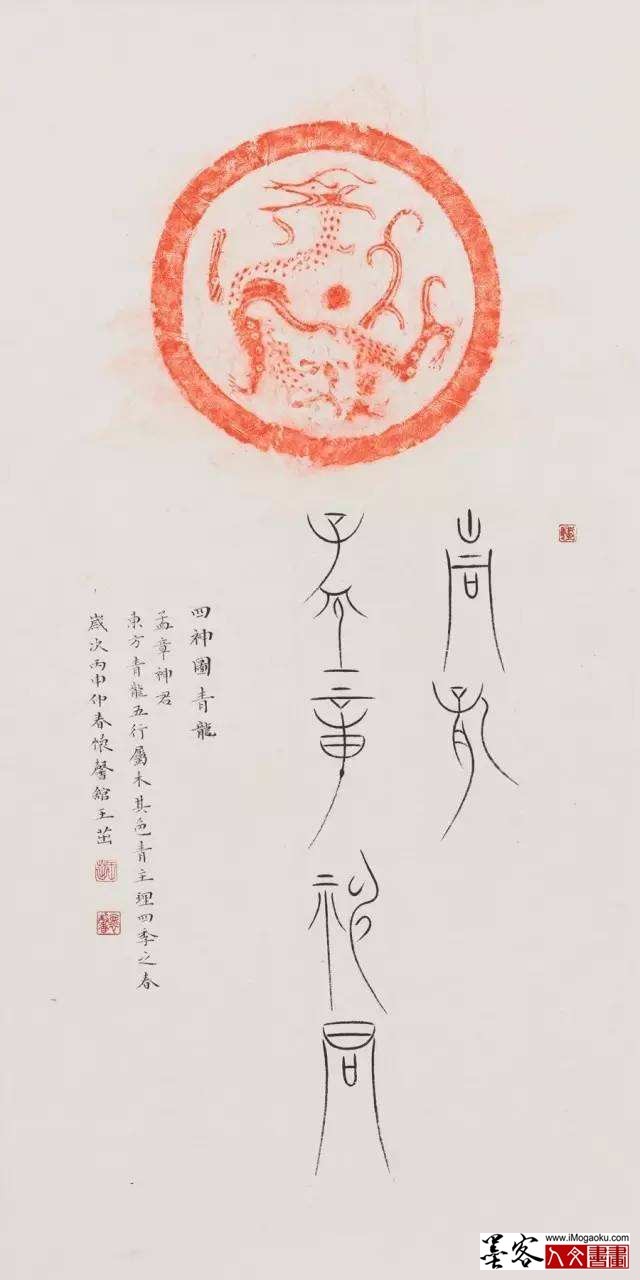 孟章神君
四神圖青龍
孟章神君
東方青龍五行屬木其色青主理四季之春
歲次丙申仲春懷馨館王茁
墨客
www.iMogaoku.com
人文書畫